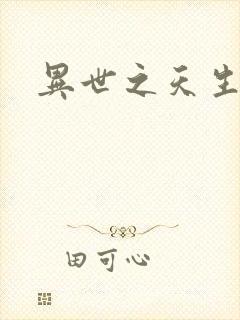 異世之天生
田可心